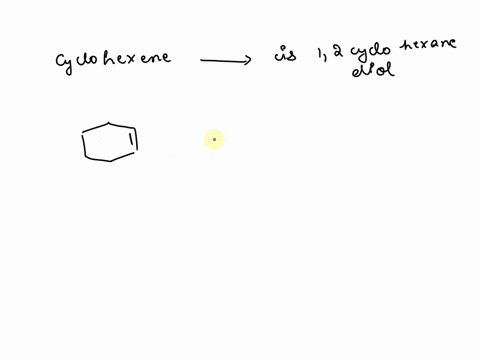 cyclohexene → cis 1,2 cyclo hexane
diol